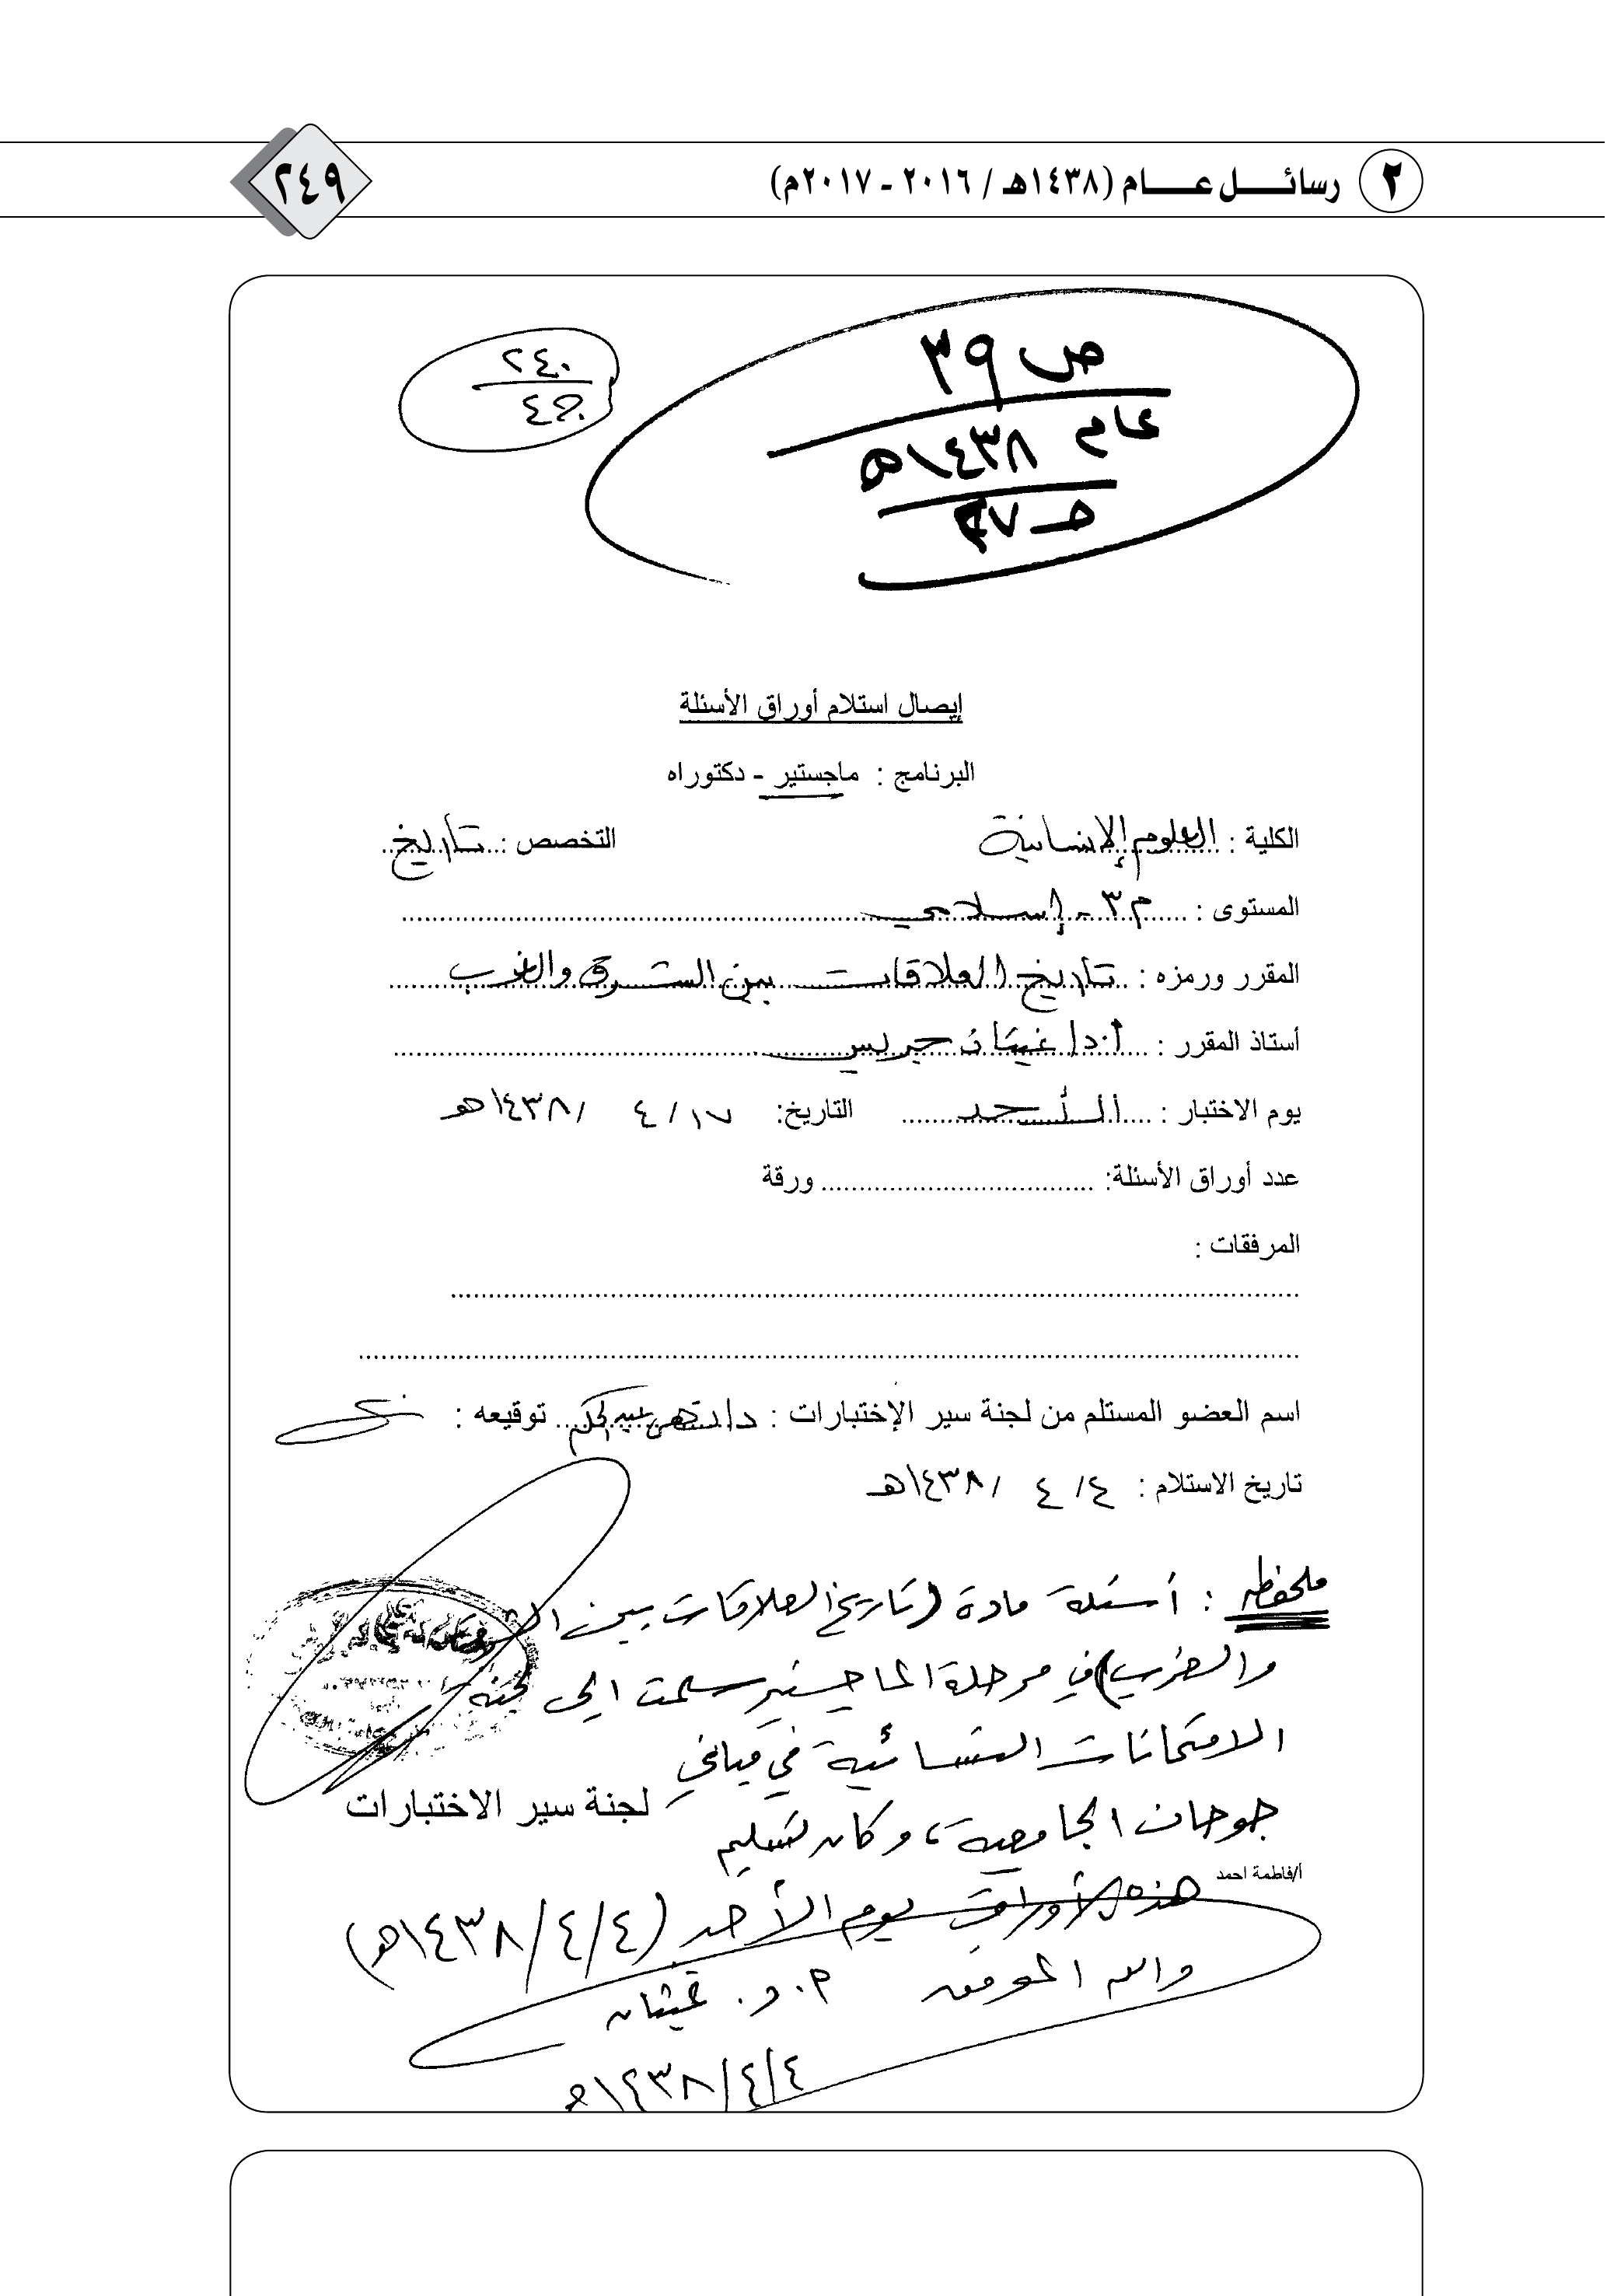 ٢ رسائل عام (١٤٣٨هـ / ٢٠١٦ - ٢٠١٧م)
٢٤٩
ص ٣٩
عام ١٤٣٨هـ
٢٤٠
ج٤
إيصال استلام أوراق الأسئلة
البرنامج : ماجستير - دكتوراه
الكلية : العلوم الإنسانية التخصص : تاريخ
المستوى : م٣ - إسلامي
المقرر ورمزه : تاريخ العلاقات بين الشرق والغرب
أستاذ المقرر : أ.د/ غيثان جريس
يوم الاختبار : الأحد التاريخ: ١٧ / ٤ / ١٤٣٨هـ
عدد أوراق الأسئلة: ورقة
المرفقات :
اسم العضو المستلم من لجنة سير الإختبارات : توقيعه :
تاريخ الاستلام : ٤ / ٤ / ١٤٣٨هـ
ملحفظه : أسئلة مادة (تاريخ العلاقات بين الشرق
والغرب) في مرحلة الماجستير سلمت الى لجنة
الامتحانات النسائية في مباني
لجنة سير الاختبارات
جوحان الجامعية، وكان تسليم
أ/فاطمة احمد
هذه الأوراق يوم الأحد (٤/٤/١٤٣٨هـ)
والله الموفق أ. د. غيثان
٤/٤/١٤٣٨هـ